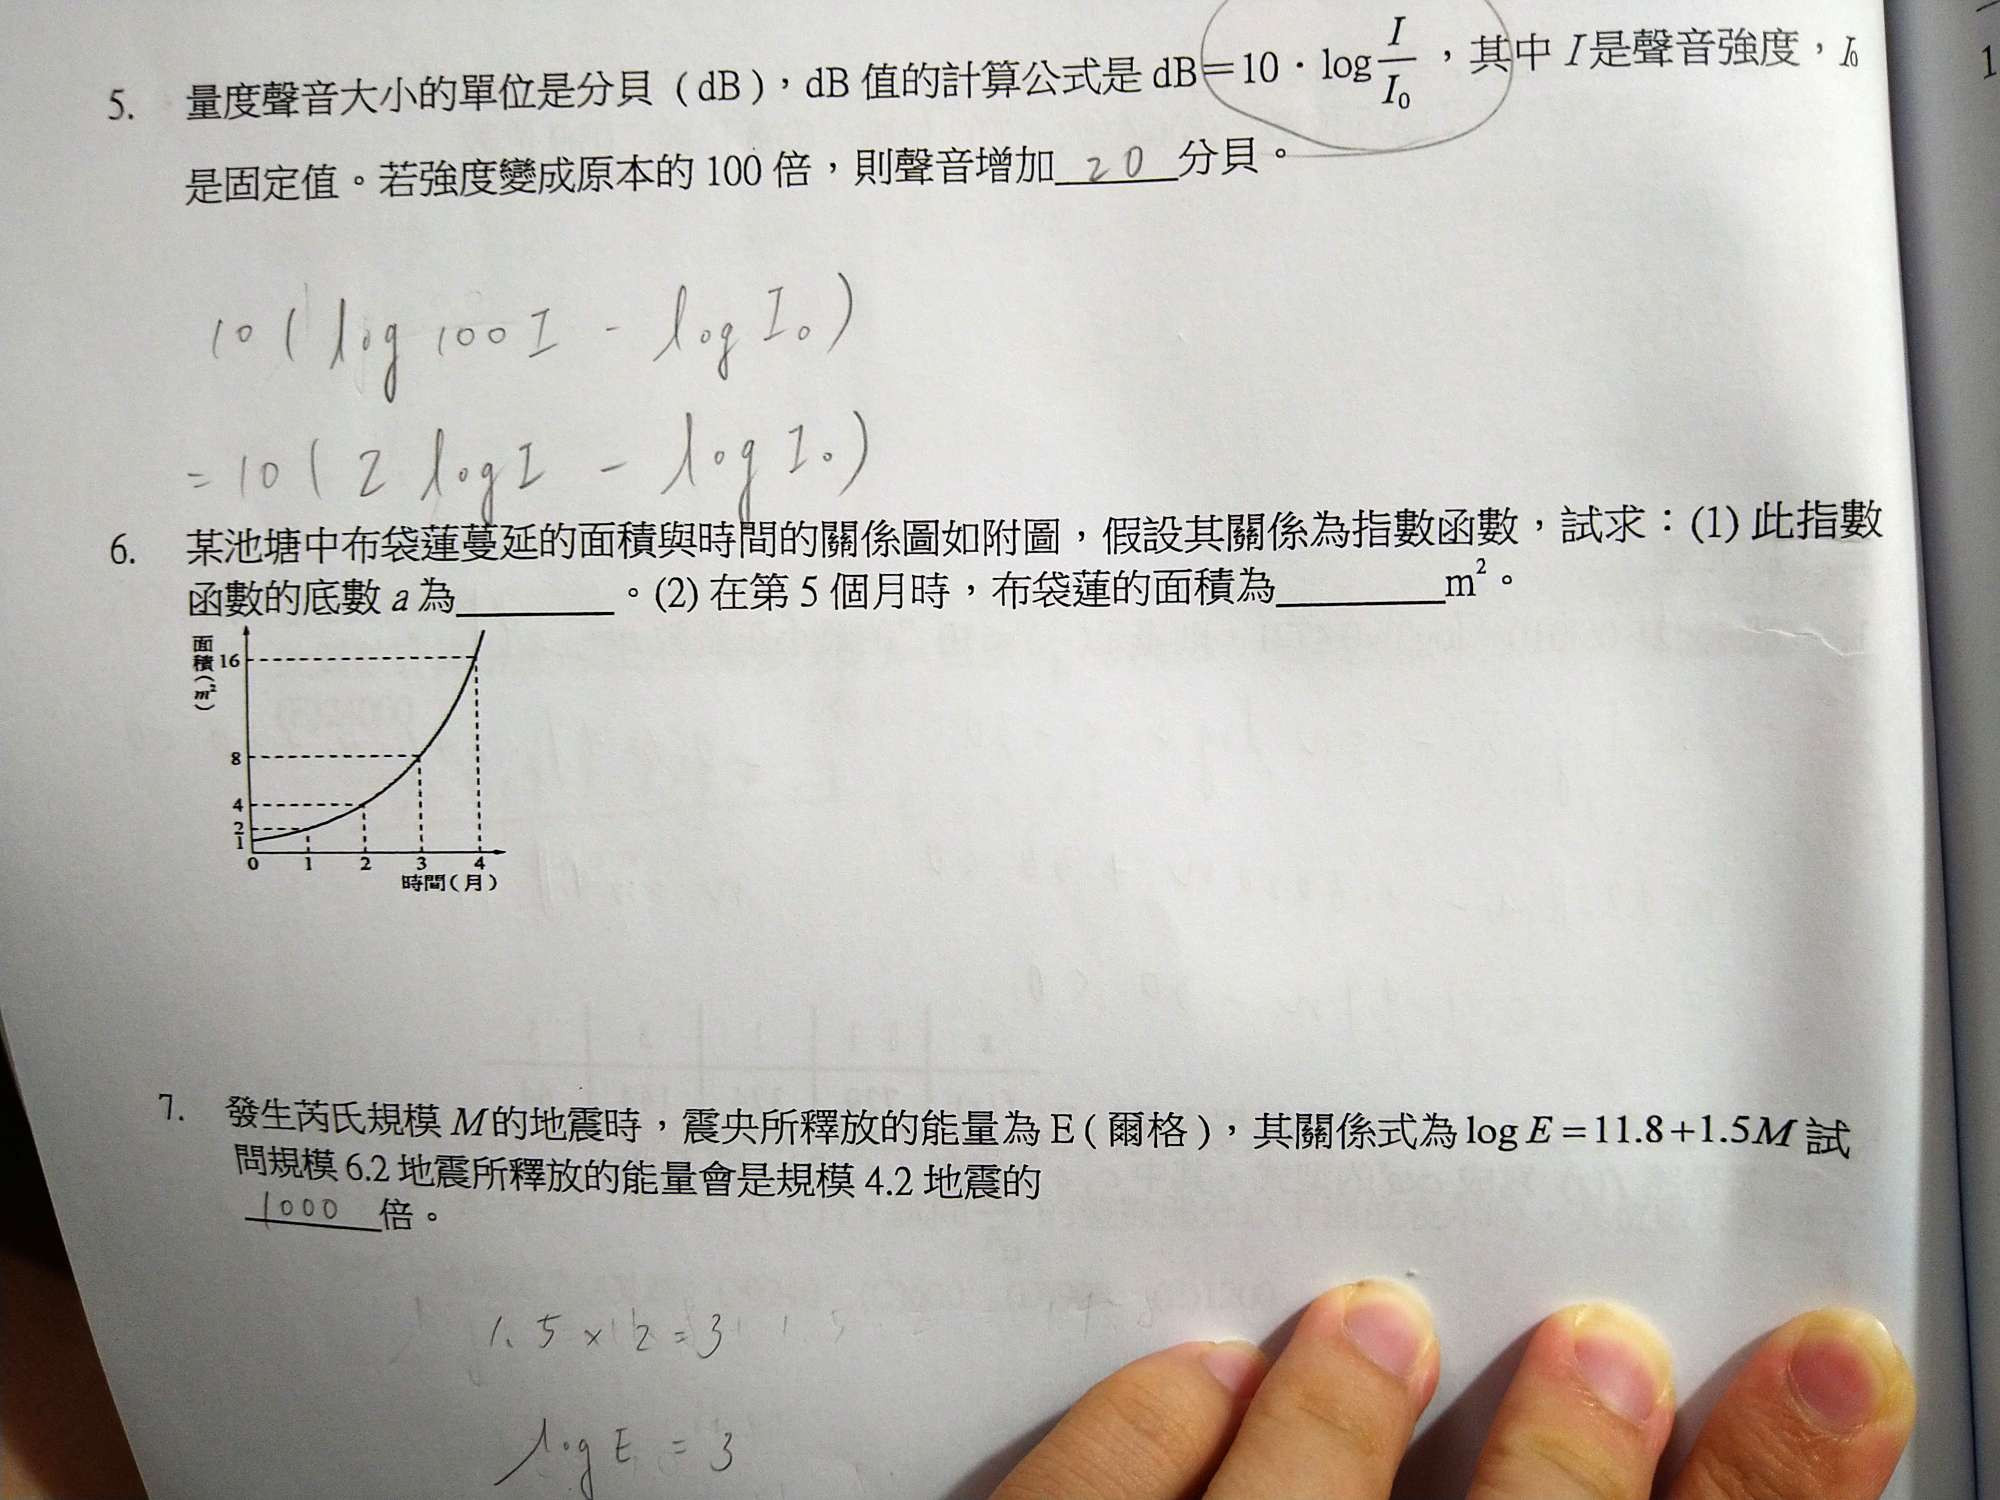 5. 量度聲音大小的單位是分貝（dB），dB 值的計算公式是 dB＝10·log I/I₀，其中 I 是聲音強度，I₀
是固定值。若強度變成原本的 100 倍，則聲音增加 20 分貝。
10 ( log 100 I - log I₀ )
= 10 ( 2 log I - log I₀ )
6. 某池塘中布袋蓮蔓延的面積與時間的關係圖如附圖，假設其關係為指數函數，試求：(1) 此指數
函數的底數 a 為________。(2) 在第 5 個月時，布袋蓮的面積為________m²。
面積（m²）
16
8
4
2
1
0 1 2 3 4
時間（月）
7. 發生芮氏規模 M 的地震時，震央所釋放的能量為 E（爾格），其關係式為 log E = 11.8 + 1.5M 試
問規模 6.2 地震所釋放的能量會是規模 4.2 地震的
1000 倍。
1.5 × 2 = 3
log E = 3